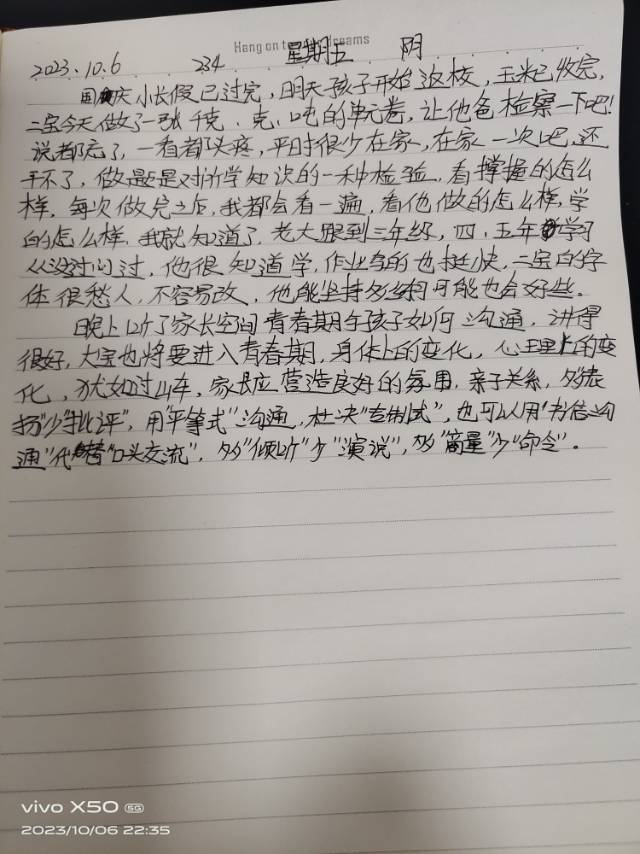 Hang on to your dreams
2023.10.6 234 星期五 阴
国庆小长假已过完,明天孩子开始返校,玉米已收完,
二宝今天做了一张千克、克、吨的单元卷,让他爸检察一下吧!
说都忘了,一看都头疼,平时很少在家,在家一次吧,还
干不了,做题是对所学知识的一种检验,看撑握的怎么
样,每次做完之后,我都会看一遍,看他做的怎么样,学
的怎么样,我就知道了,老大跟到三年级,四、五年学习
从没过问过,他很知道学,作业写的也挺快,二宝的字
体很愁人,不容易改,他能坚持多练可能也会好些。
晚上听了家长空间青春期与孩子如何沟通,讲得
很好,大宝也将要进入青春期,身体上的变化,心理上的变
化,犹如过山车,家长应营造良好的氛围,亲子关系,多"表
扬"少"批评",用"平等式"沟通,杜决"专制式",也可以用"书信沟
通"代替"口头交流",多"倾听"少"演说",多"商量"少"命令"。
vivo X50 5G
2023/10/06 22:35